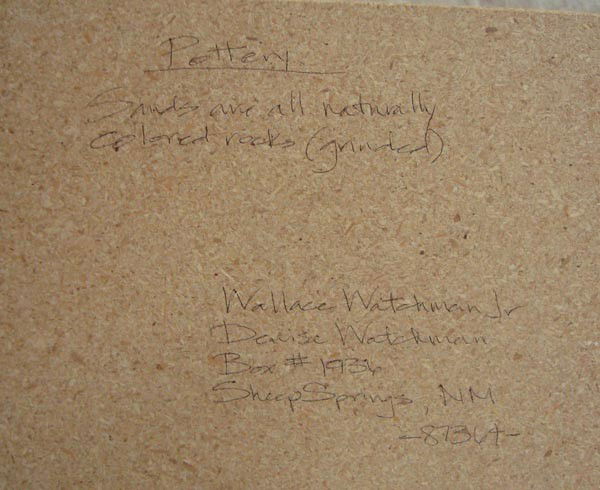 Pottery.
Sands are all naturally
colored rocks (grinded)
Wallace Watchman Jr
Denise Watchman
Box # 1936
Sheep Springs, NM
-87364-